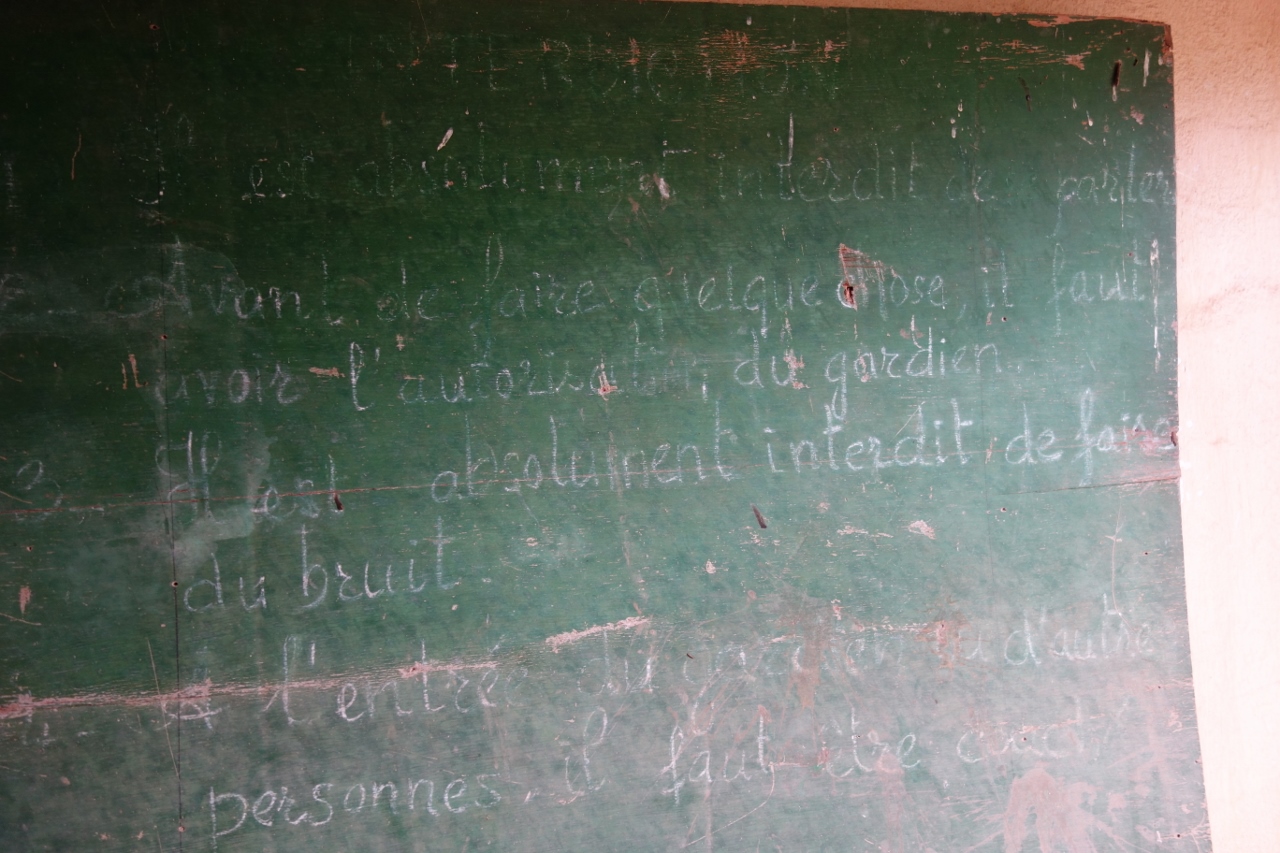 Il est absolument interdit de parler
Avant de faire quelque chose, il faut
avoir l'autorisation du gardien.
3 Il est absolument interdit de faire
du bruit.
4- A l'entrée du gardien ou d'autre
personnes, il faut être